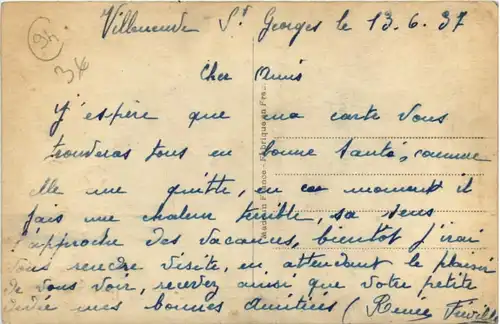 94
3x
Villeneuve St Georges le 13.6.37
Cher Amis
J'éspère que ma carte vous
trouveras tous en bonne santé, comme
elle me quitte, en ce moment il
fais une chaleur terrible, sa sens
l'approche des vacances, bientot j'irai
vous rendre visite, en attendant le plaisir
de vous voir, recevez ainsi que votre petite
mes bonnes amitiées (Renée
Made in France - Fabriqué en Fra